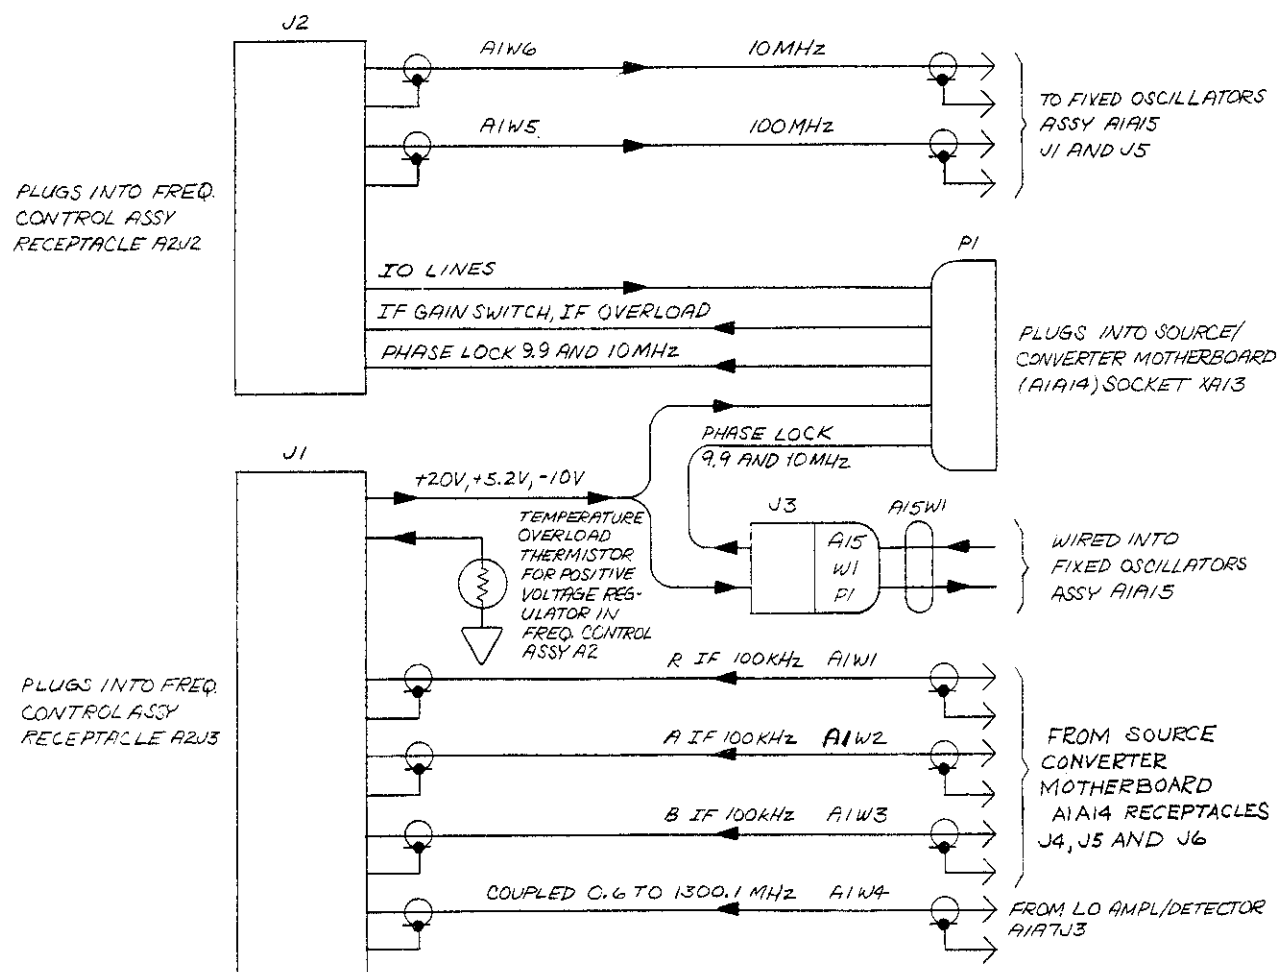 J2
A1W6
10MHz
A1W5
100MHz
TO FIXED OSCILLATORS
ASSY A1A15
J1 AND J5
PLUGS INTO FREQ.
CONTROL ASSY
RECEPTACLE A2J2
IO LINES
IF GAIN SWITCH, IF OVERLOAD
PHASE LOCK 9.9 AND 10MHz
P1
PLUGS INTO SOURCE/
CONVERTER MOTHERBOARD
(A1A14) SOCKET XA13
PHASE LOCK
9.9 AND 10MHz
J1
+20V, +5.2V, -10V
TEMPERATURE
OVERLOAD
THERMISTOR
FOR POSITIVE
VOLTAGE REG-
ULATOR IN
FREQ. CONTROL
ASSY A2
J3
A15
W1
P1
A15W1
WIRED INTO
FIXED OSCILLATORS
ASSY A1A15
PLUGS INTO FREQ.
CONTROL ASSY
RECEPTACLE A2J3
R IF 100KHz A1W1
A IF 100KHz A1W2
B IF 100KHz A1W3
COUPLED 0.6 TO 1300.1 MHz A1W4
FROM SOURCE
CONVERTER
MOTHERBOARD
A1A14 RECEPTACLES
J4, J5 AND J6
FROM LO AMPL/DETECTOR
A1A7J3